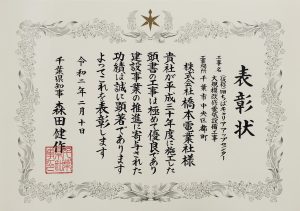 表彰状
工事名
大規模改修電気設備工事
工事箇所 千葉市中央区都町
株式会社 橋本電業社様
貴社が平成三十年度に施工した
頭書の工事は極めて優良であり
建設事業の推進に寄与された
功績は誠に顕著であります
よってこれを表彰します
令和二年二月十日
千葉県知事 森田健作